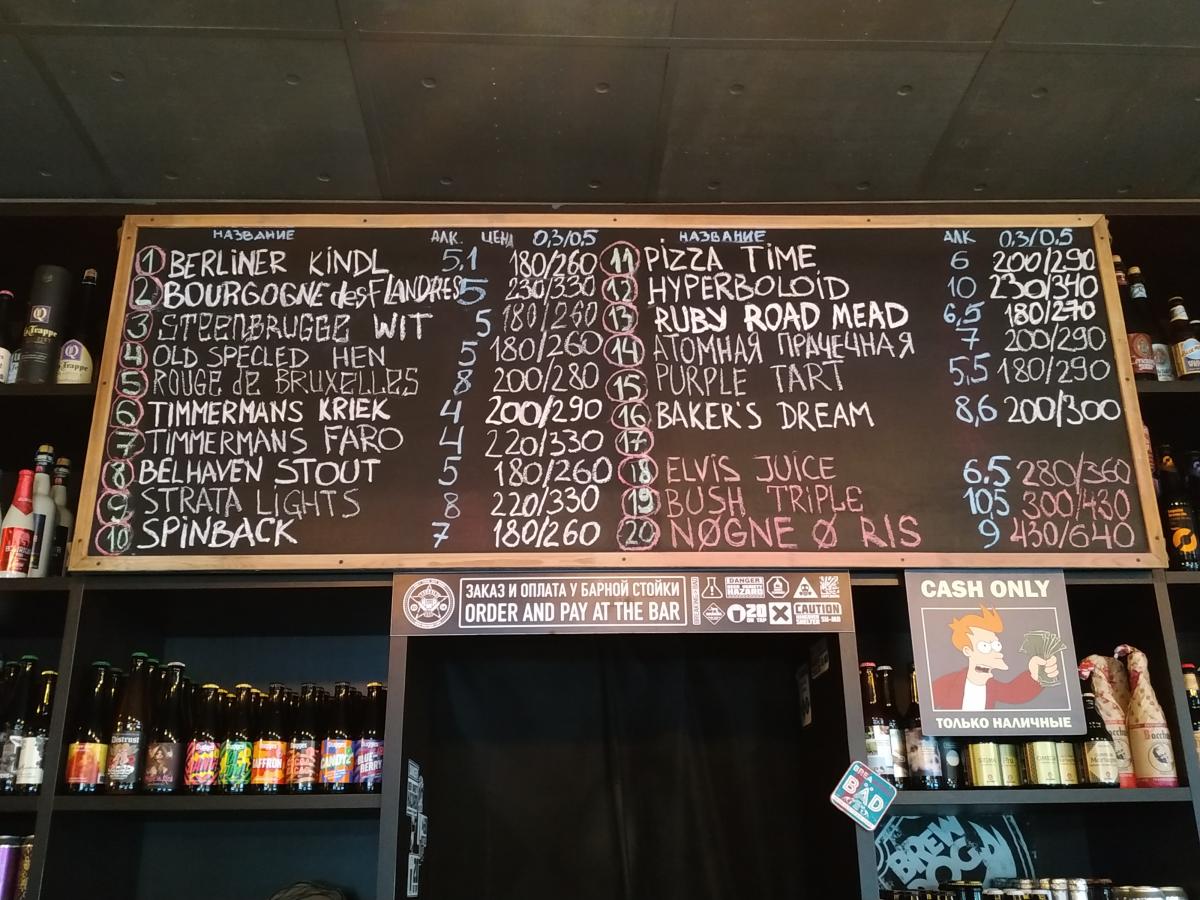 НАЗВАНИЕ АЛК. ЦЕНА 0,3/0,5
1 BERLINER KINDL 5,1 180/260
2 BOURGOGNE des FLANDRES 5 230/330
3 STEENBRUGGE WIT 5 180/260
4 OLD SPECLED HEN 5 180/260
5 ROUGE de BRUXELLES 8 200/280
6 TIMMERMANS KRIEK 4 200/290
7 TIMMERMANS FARO 4 220/330
8 BELHAVEN STOUT 5 180/260
9 STRATA LIGHTS 8 220/330
10 SPINBACK 7 180/260
НАЗВАНИЕ АЛК 0,3/0,5
11 PIZZA TIME 6 200/290
12 HYPERBOLOID 10 230/340
13 RUBY ROAD MEAD 6,5 180/270
14 АТОМНАЯ ПРАЧЕЧНАЯ 7 200/290
15 PURPLE TART 5,5 180/290
16 BAKER'S DREAM 8,6 200/300
17
18 ELVIS JUICE 6.5 280/360
19 BUSH TRIPLE 10,5 300/430
20 NØGNE Ø RIS 9 430/640
ЗАКАЗ И ОПЛАТА У БАРНОЙ СТОЙКИ
ORDER AND PAY AT THE BAR
DANGER
HAZARD
20
ON TAP
CAUTION
CASH ONLY
ТОЛЬКО НАЛИЧНЫЕ
Trappe
Trappe
Distrust
SAFFRON
CANDYZ
BLUEBERRY
BÄD
BREW
DOG